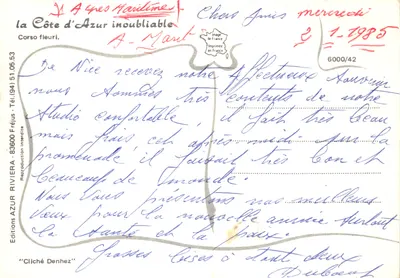 Alpes Maritimes
la Côte d'Azur inoubliable
Corso fleuri.
A-Mart
Chers amis
mercredi
2-1-1985
6000/42
De Nice recevez notre affectueux souvenir
nous sommes très contents de notre
studio confortable, il fait très beau
mais frais cet après midi sur la
promenade il faisait très bon et
beaucoup de monde.
Nous vous présentons nos meilleurs
vœux pour la nouvelle année surtout
la santé et la paix.
Grosses bises à tous deux
Editions AZUR RIVIERA - 83600 Fréjus - Tél. (94) 51.05.53
Reproduction interdite
"Cliché Denhez"